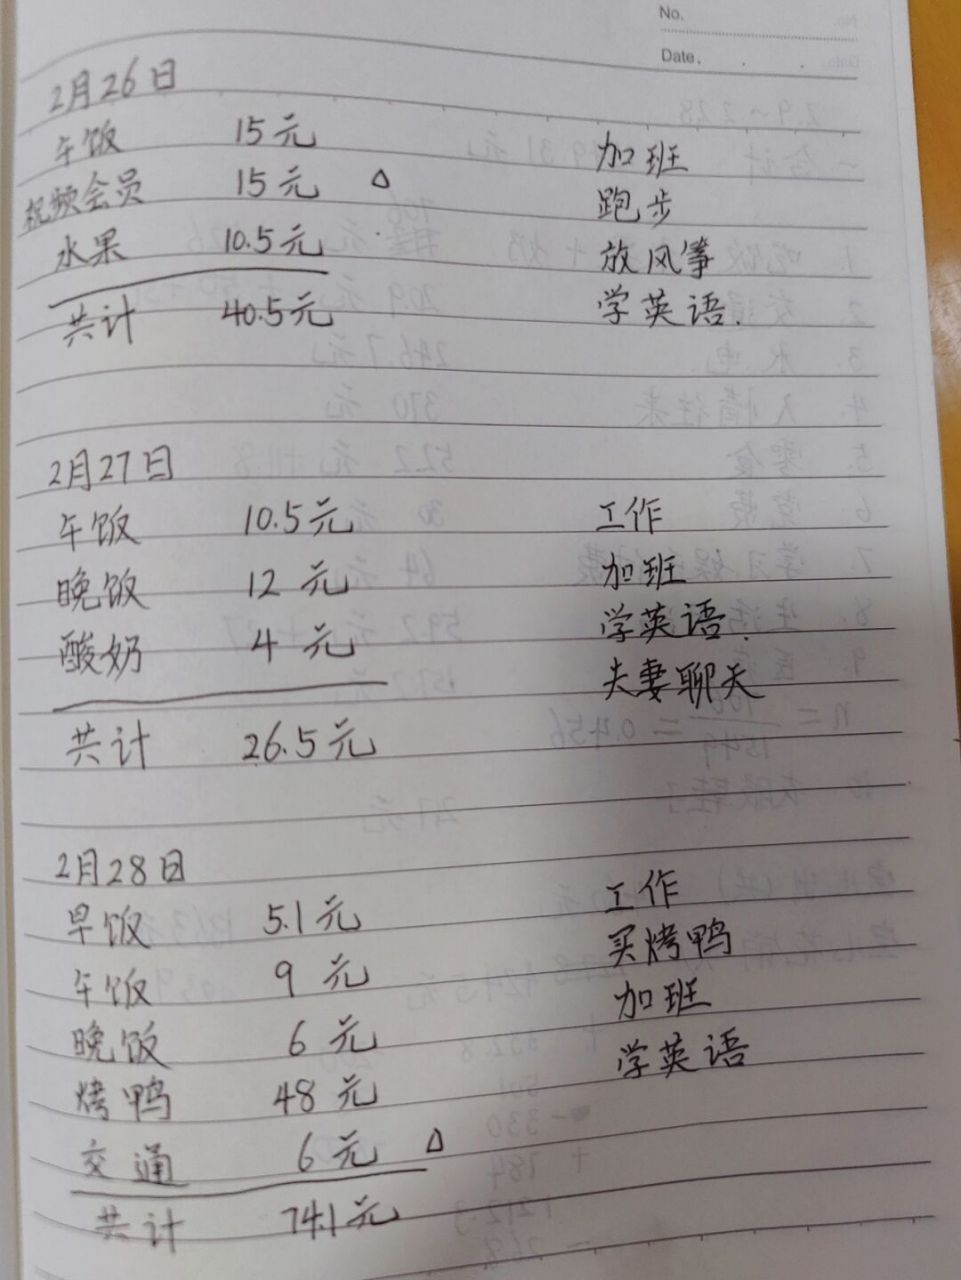 No.
Date.
2月26日
午饭 15元 加班
视频会员 15元 △ 跑步
水果 10.5元 放风筝
共计 40.5元 学英语.
2月27日
午饭 10.5元 工作
晚饭 12元 加班
酸奶 4元 学英语.
夫妻聊天
共计 26.5元
2月28日
早饭 5.1元 工作
午饭 9元 买烤鸭
晚饭 6元 加班
烤鸭 48元 学英语
交通 6元 △
共计 74.1元